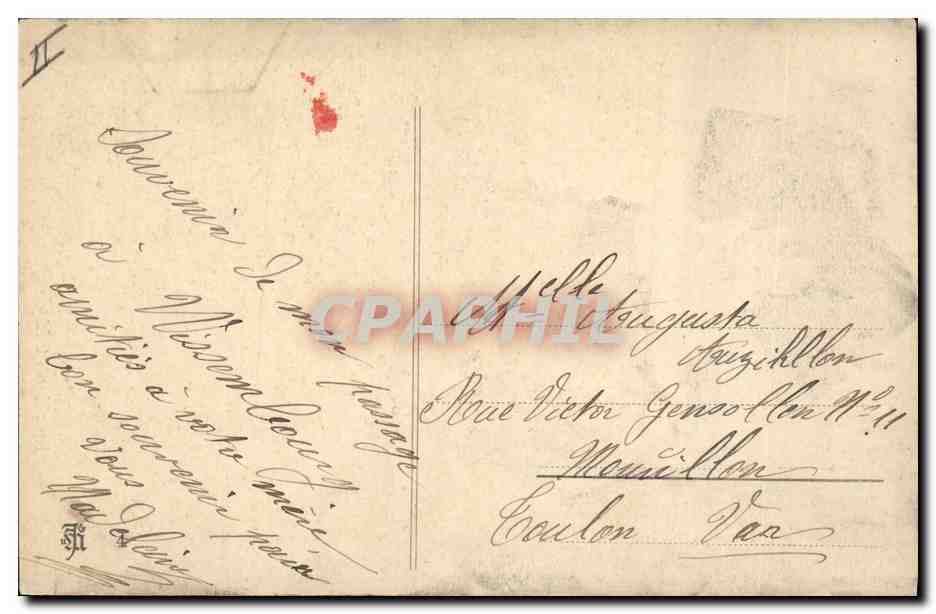 II
Souvenir de mon passage
à Wissembourg
amitiés à votre mère
bon souvenir pour
vous
Madeleine
4
Melle Augusta
Auzihllon
Rue Victor Gensollen No 11
Mouillon
Toulon Var
CPAPHIL